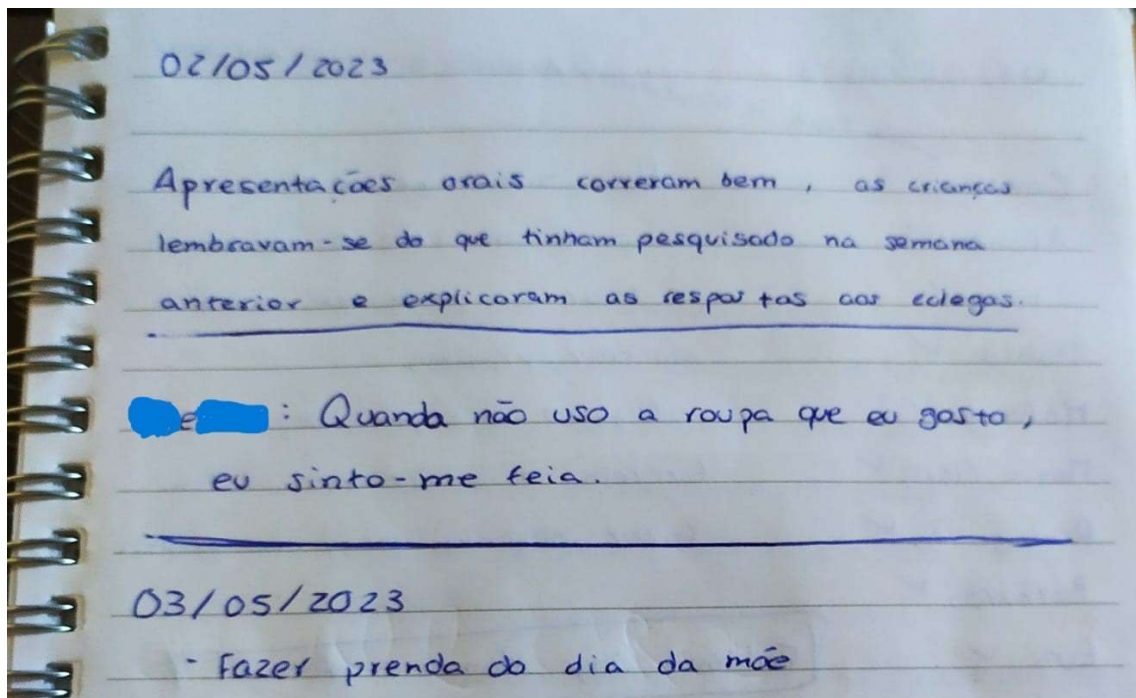 02/05/2023
Apresentações orais correram bem, as crianças
lembravam-se do que tinham pesquisado na semana
anterior e explicaram as respostas aos colegas.
e : Quando não uso a roupa que eu gosto,
eu sinto-me feia.
03/05/2023
- Fazer prenda do dia da mãe